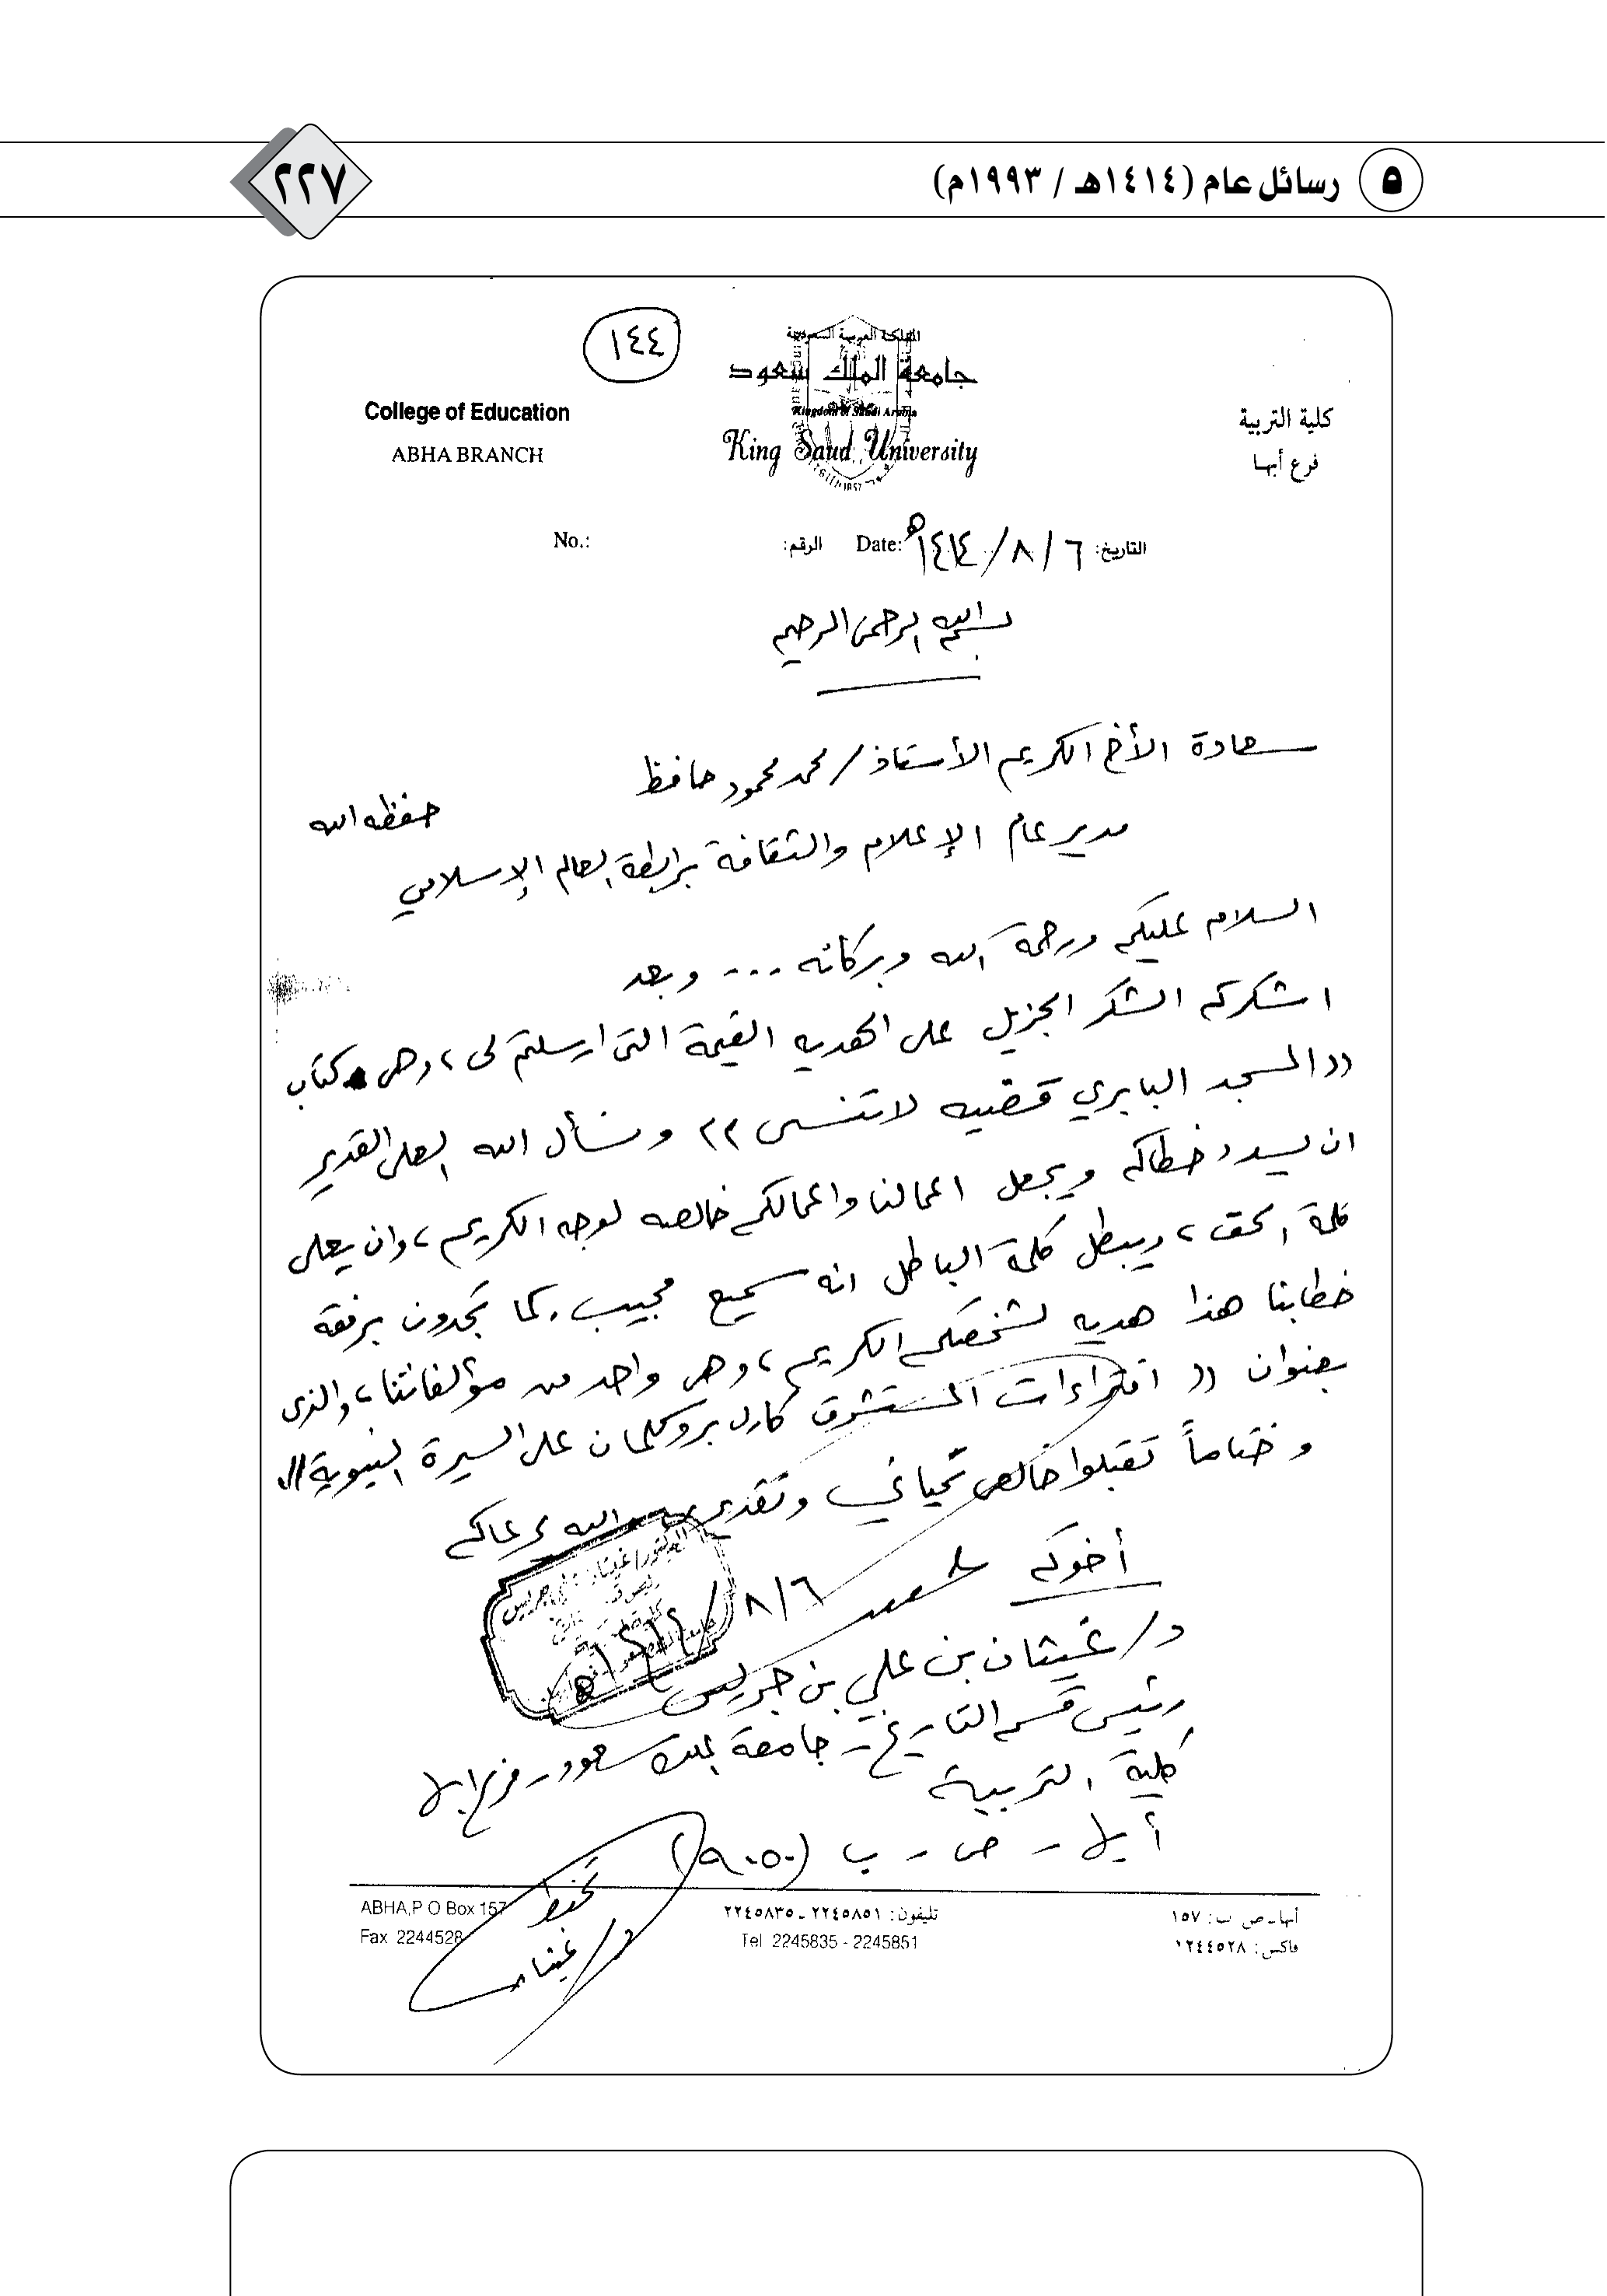 ٥ رسائل عام (١٤١٤هـ / ١٩٩٣م)
٢٢٧
١٤٤
المملكة العربية السعودية
جامعة الملك سعود
Kingdom of Saudi Arabia
King Saud University
كلية التربية
فرع أبها
College of Education
ABHA BRANCH
التاريخ: ٦/٨/١٤١٤هـ Date: الرقم: No.:
بسم الله الرحمن الرحيم
سعادة الأخ الكريم الأستاذ/ محمد محمود حافظ
حفظه الله
مدير عام الإعلام والثقافة برابطة العالم الإسلامي
السلام عليكم ورحمة الله وبركاته ... وبعد
اشكركم الشكر الجزيل على الهديه القيمة التي ارسلتم لي، وهي كتاب
((المسجد البابري قضيه لا تنسى)) ونسأل الله العلي القدير
ان يسدد خطاكم ويجعل اعمالنا واعمالكم خالصه لوجهه الكريم، وان يعلي
كلمة الحق، ويبطل كلمة الباطل انه سميع مجيب. كما تجدون برفقة
خطابنا هذا هديه لشخصكم الكريم، وهي واحد من مؤلفاتنا، والذي
بعنوان ((افتراءات المستشرق كارل بروكلمان على السيرة النبوية)).
وختاماً تقبلوا خالص تحياتي وتقديري والله يرعاكم
أخوكم
٦/٨/١٤١٤هـ
د/ غيثان بن علي بن جريس
رئيس قسم التاريخ - جامعة الملك سعود - فرع ابها
كلية التربية
أبها - ص - ب (٩٠٥٠)
تحفظ
د/ غيثان
أبها ـ ص ب: ١٥٧
فاكس: ٢٢٤٤٥٢٨
تليفون: ٢٢٤٥٨٥١ ـ ٢٢٤٥٨٣٥
Tel 2245835 - 2245851
ABHA,P O Box 157
Fax 2244528